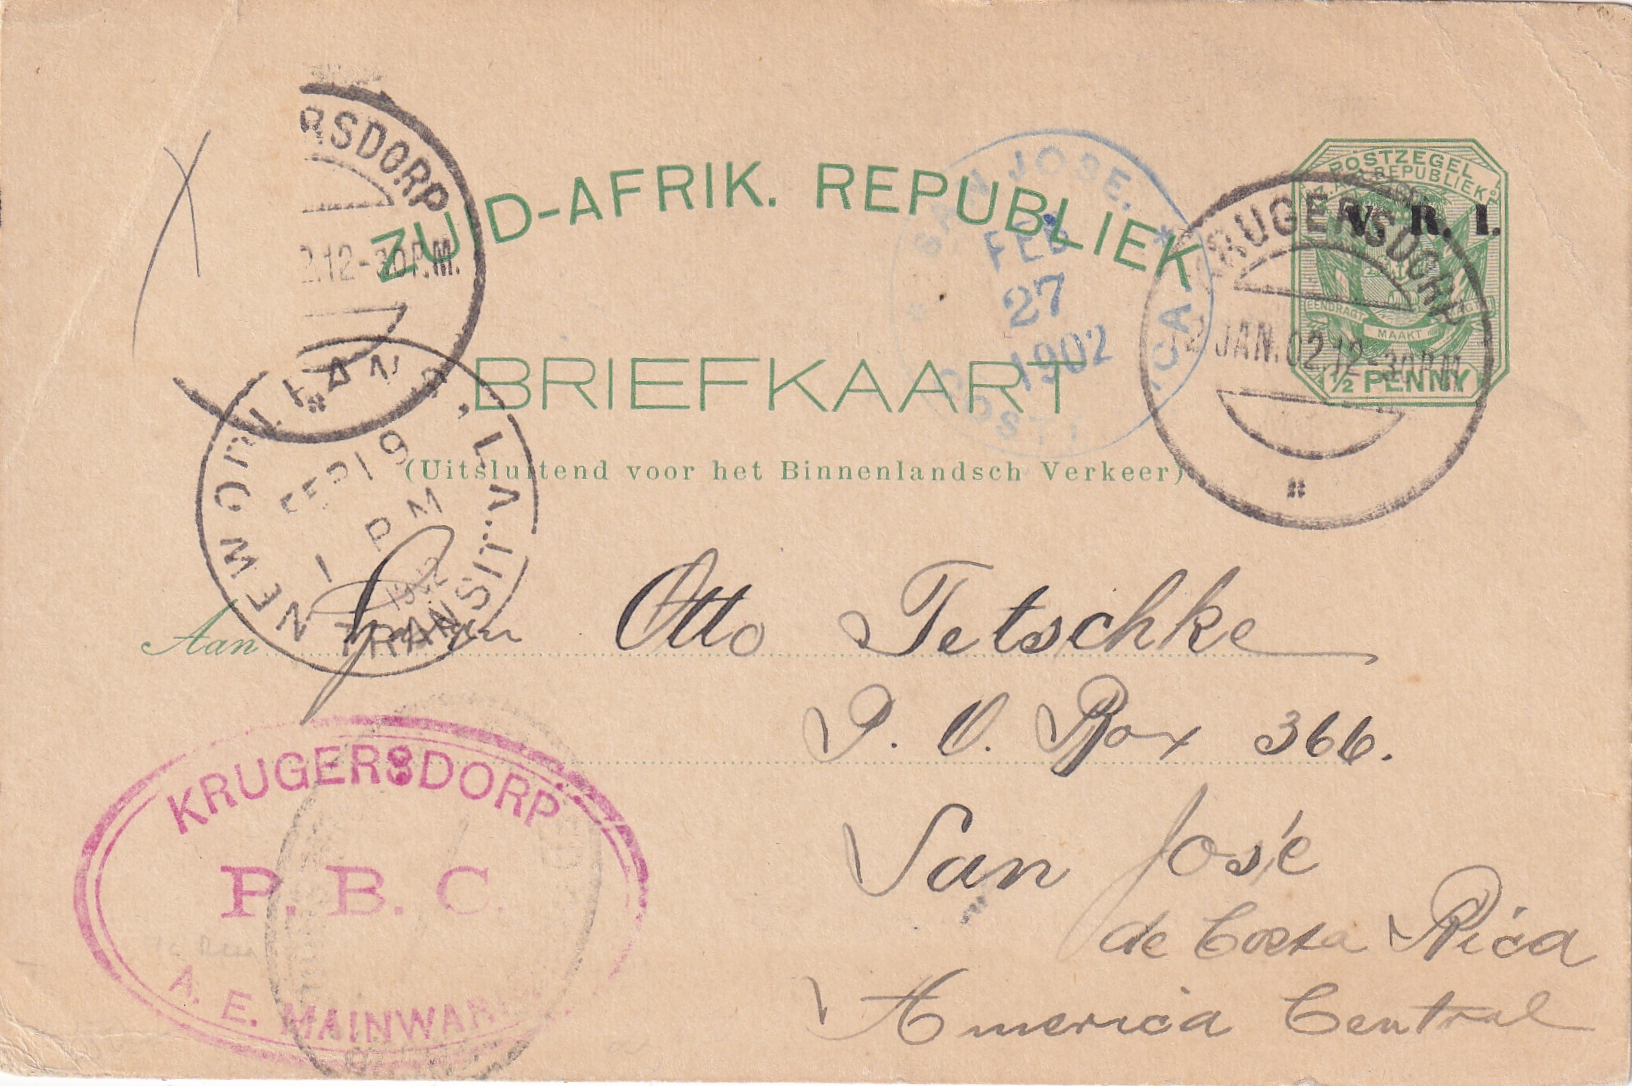 RSDORP
2.12-30P.M.
ZUID-AFRIK. REPUBLIEK
BRIEFKAART
(Uitsluitend voor het Binnenlandsch Verkeer)
SAN JOSE.
FEB
27
1902
COSTA RICA
POSTZEGEL
Z. AFR. REPUBLIEK
V. R. I.
EENDRAGT
MAAKT
MAGT
1/2 PENNY
KRUGERSDORP
2 JAN. 02.12-30P.M.
NEW ORLEANS, LA.
FEB 19
1 PM
1902
TRANSIT
Aan Herrn Otto Tetschke
P. O. Box 366.
San José
de Costa Rica
America Central
KRUGERSDORP
P. B. C.
A. E. MAINWAR